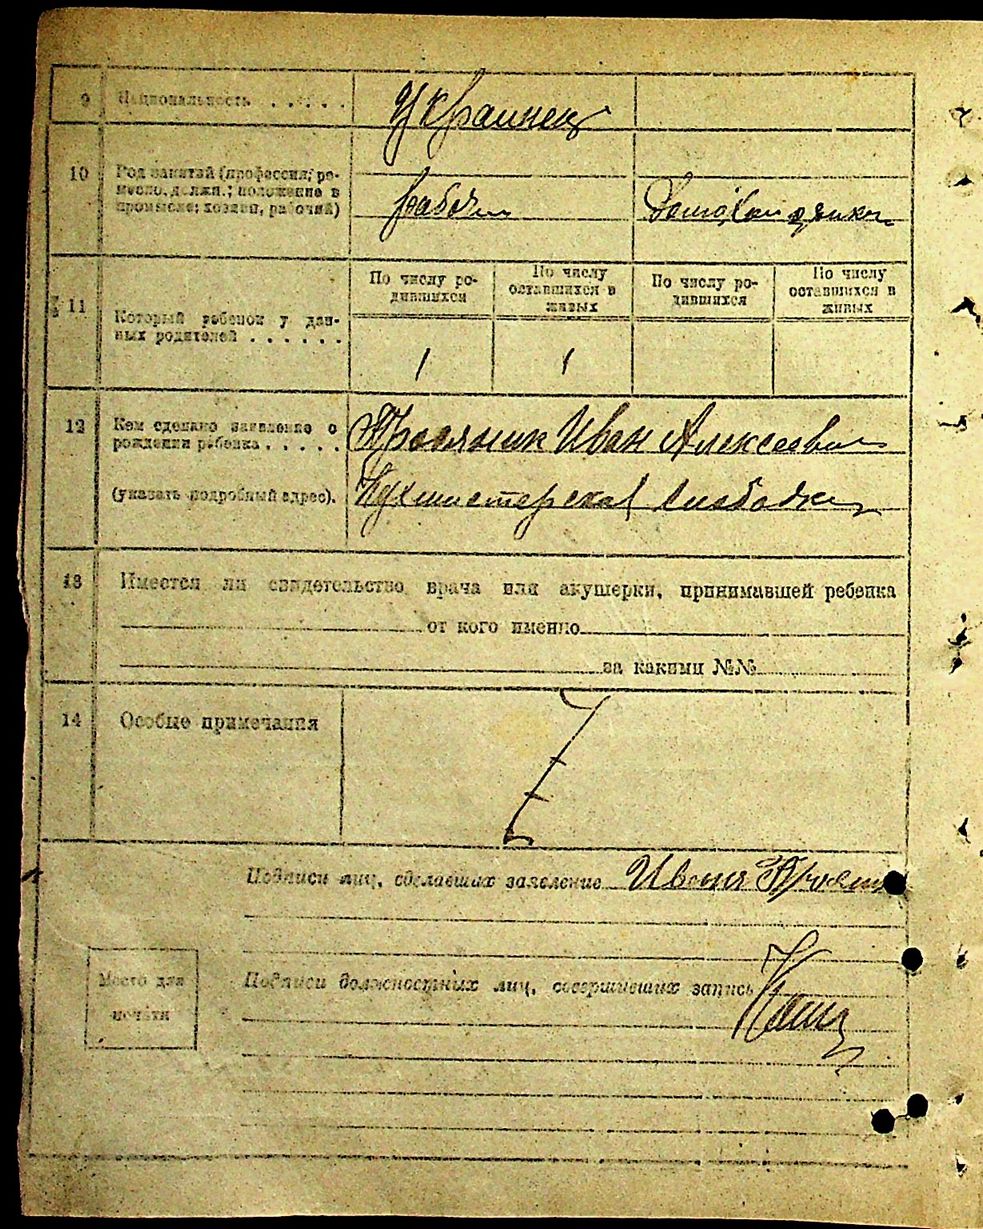 9 Национальность . . . . . Украинец
10 Род занятий (профессия, ре-
месло, должн.; положение в
промысле; хозяин, рабочий)
рабоч Домохозяйка
11 Который ребенок у дан-
ных родителей . . . . . .
По числу ро-
дившихся
По числу
оставшихся в
живых
По числу ро-
дившихся
По числу
оставшихся в
живых
1 1
12 Кем сделано заявление о
рождении ребенка . . . . .
Просяник Иван Алексеевич
(указать подробный адрес).
Кухмистерская Слободка
13 Имеется ли свидетельство врача или акушерки, принимавшей ребенка
от кого именно
за какими №№
14 Особые примечания
Подписи лиц, сделавших заявление Иван
Место для
печати
Подписи должностных лиц, совершивших запись